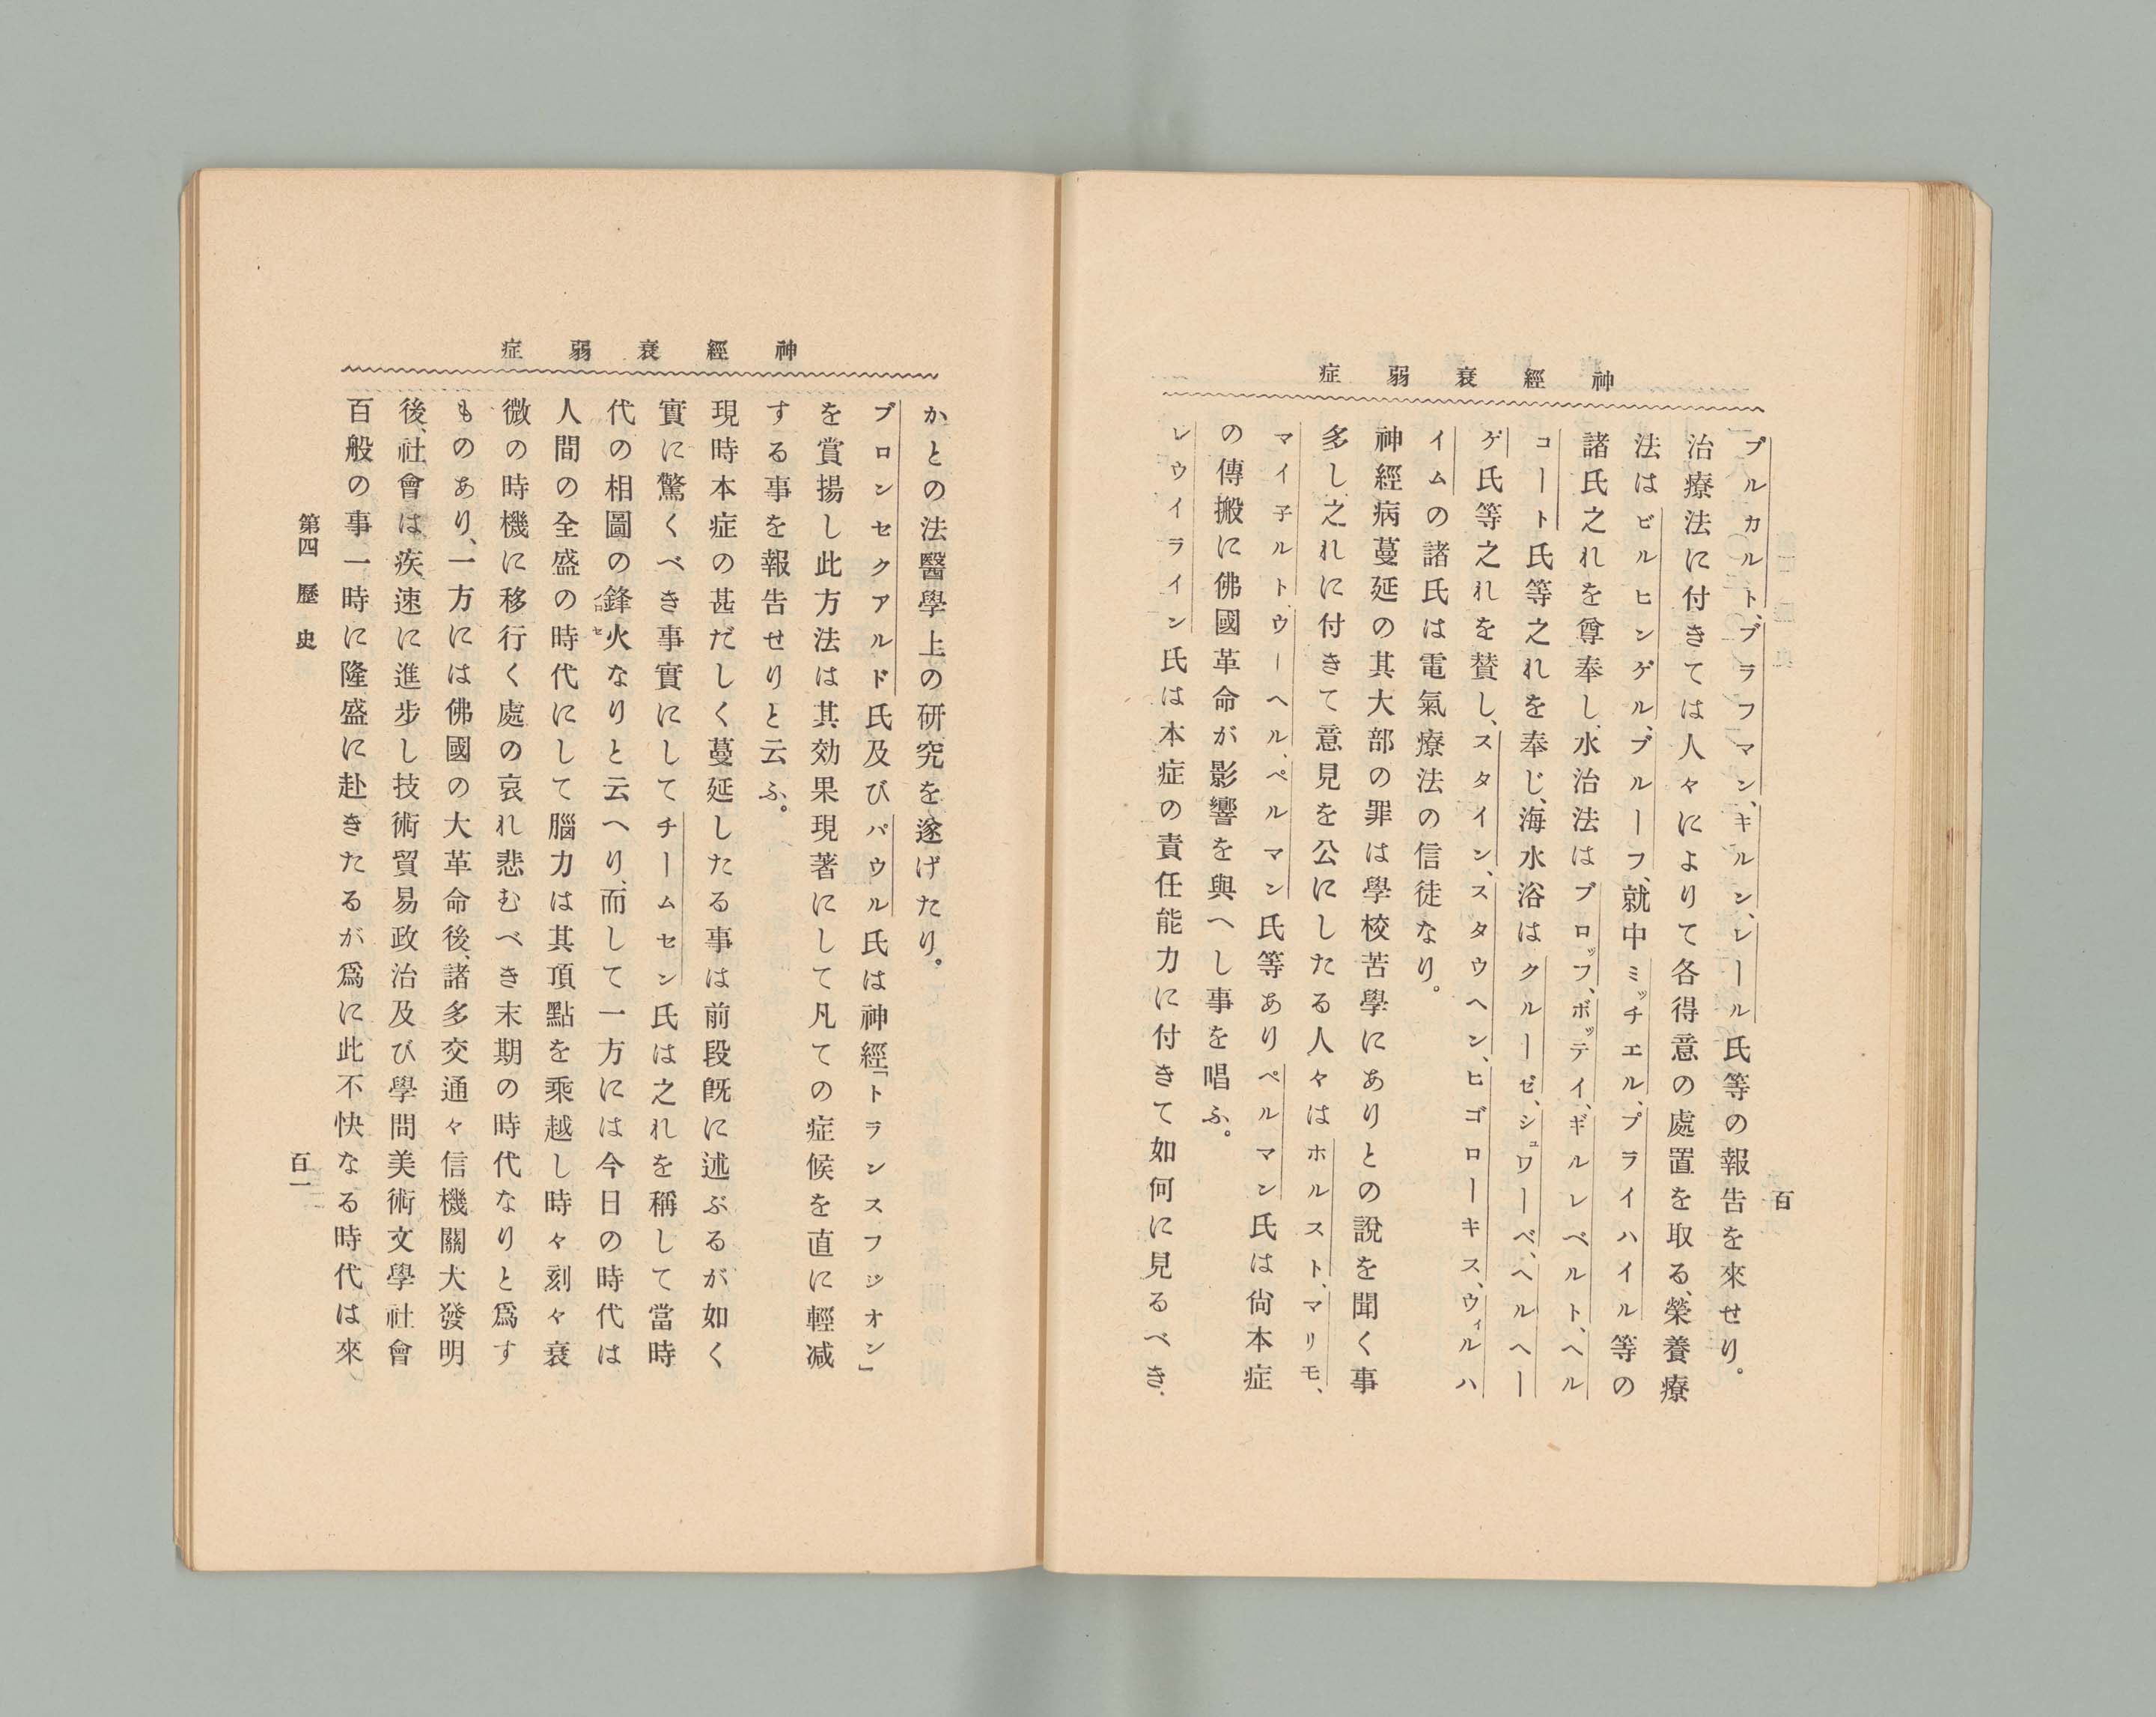 神經衰弱症
百
ブルカルト、ブラフマン、キルン、レール氏等の報告を來せり。
治療法に付きては人々によりて各得意の處置を取る、榮養療
法はビルヒンゲル、ブルーフ、就中ミッチエル、プライハイル等の
諸氏之れを尊奉し、水治法はブロッフ、ボッテイ、ギルレベルト、ヘル
コート氏等之れを奉じ、海水浴はクルーゼ、シュワーベ、ヘルヘー
ゲ氏等之れを賛し、スタイン、スタウヘン、ヒゴローキス、ウィルハ
イムの諸氏は電氣療法の信徒なり。
神經病蔓延の其大部の罪は學校苦學にありとの說を聞く事
多し、之れに付きて意見を公にしたる人々はホルスト、マリモ、
マイ子ルト、ウーヘル、ペルマン氏等ありペルマン氏は尙本症
の傳搬に佛國革命が影響を與へし事を唱ふ。
レウイライン氏は本症の責任能力に付きて如何に見るべき、
神經衰弱症
かとの法醫學上の研究を遂げたり。
ブロンセクアルド氏及びパウル氏は神經「トランスフジオン」
を賞揚し此方法は其効果現著にして凡ての症候を直に輕减
する事を報告せりと云ふ。
現時本症の甚だしく蔓延したる事は前段既に述ぶるが如く
實に驚くべき事實にしてチームセン氏は之れを稱して當時
代の相圖の鋒火なりと云へり、而して一方には今日の時代は
人間の全盛の時代にして腦力は其頂點を乘越し時々刻々衰
微の時機に移行く處の哀れ悲むべき末期の時代なりと爲す
ものあり、一方には佛國の大革命後、諸多交通々信機關大發明
後、社會は疾速に進步し技術貿易政治及び學問美術文學社會
百般の事一時に隆盛に赴きたるが爲に此不快なる時代は來
第四 歷史
百一